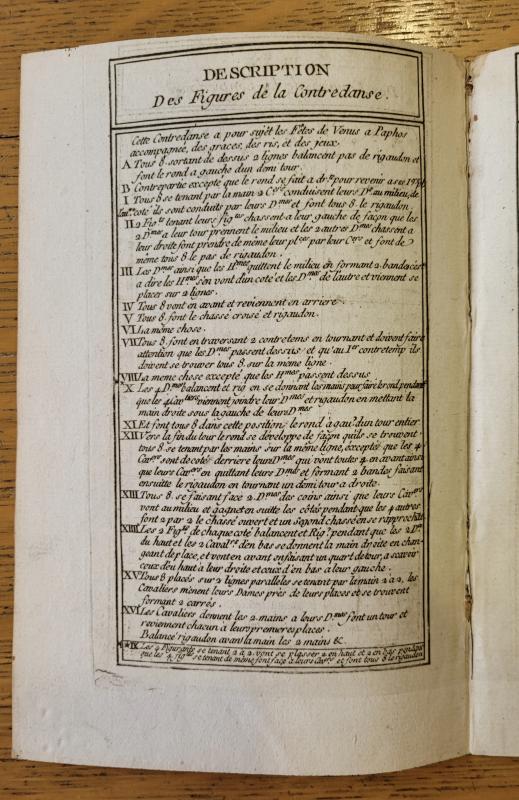 DESCRIPTION
Des Figures de la Contredanse.
Cette Contredanse a pour sujét les Fêtes de Vénus a Paphos
accompagnée, des graces, des ris, et des jeux.
A Tous 8. sortant de dessus 2 lignes balancent pas de rigaudon et
font le rond a gauche d'un demi tour.
B Contrepartie excepté que le rond se fait a dr.te pour revenir a ses
I Tous 8 se tenant par la main 2 C.ers conduisent leurs D.es au milieu, de
l'au.e coté ils sont conduits par leurs D.mes et font tous 8. le rigaudon.
II 2 Fig.tes tenant leurs fig.tes chassent a leur gauche de façon que les
2 D.mes a leur tour prennent le milieu et les 2 autres D.mes chassent a
leur droite font prendre de même leur pl.ces par leur C.ers et font de
même tous 8 le pas de rigaudon.
III Les D.mes ainsi que les H.mes quittent le milieu en formant 2 bandes c'est
a dire les H.mes s'en vont d'un coté et les D.mes de l'autre et viennent se
placer sur 2 lignes.
IV Tous 8 vont en avant et reviennent en arriere
V Tous 8. font le chassé croisé et rigaudon.
VI La même chose.
VII Tous 8. font en traversant 2 contretems en tournant et doivent faire
attention que les D.mes passent dessus et qu'au 1.er contretemp ils
doivent se trouver tous 8. sur la même ligne.
VIII La meme chose excepté que les H.mes passent dessus
*X Les 4 D.mes balancent et rig en se donnant les mains pour faire le rond, pendant
que les 4 Cav.liers viennent joindre leur D.mes et rigaudon en mettant la
main droite sous la gauche de leurs D.mes
XI Et font tous 8 dans cette position, le rond à gau.e d'un tour entier
XII Vers la fin du tour le rond se dévéloppe de façon qu'ils se trouvent
tous 8 se tenant par les mains sur la même ligne, excepté que les 4
Cav.ers sont de coté derriere leurs D.mes qui vont toutes 4 en avant ainsi
que leurs Cav.ers en quittant leurs D.mes et formant 2 bandes faisant
ensuitte le rigaudon en tournant un demi tour a droite.
XIII Tous 8. se faisant face 2 D.mes des coins ainsi que leurs Cav.ers
vont au milieu et gagnent en suitte les côtés pendant que les 4 autres
font 2 par 2 le chassé ouvert et un second chassé en se rapproch.t
XIIII Les 2 Fig.tes de chaque coté balancent et Rig.t pendant que les 2 D.es
du haut et les 2 Caval.rs d'en bas se donnent la main droite en chan-
geant de place, et vont en avant en faisant un quart de tour, a scavoir
ceux d'en haut à leur droite et ceux d'en bas a leur gauche.
XV Tous 8 placés sur 2 lignes paralleles se tenant par la main 2 à 2, les
Cavaliers mènent leurs Dames près de leurs places et se trouvent
formant 2 carrés.
XVI Les Cavaliers donnent les 2 mains a leurs D.mes font un tour et
reviennent chacun à leurs premieres places.
Balancé rigaudon avant la main les 2 mains &c.
*IX Les 2 Figurants se tenant 2 a 2. vont se plasser 2 en haut et 2 en bas pendant
que les 4 fig.tes se tenant de même font face à leurs Cav.ers et font tous 8 le rigaudon